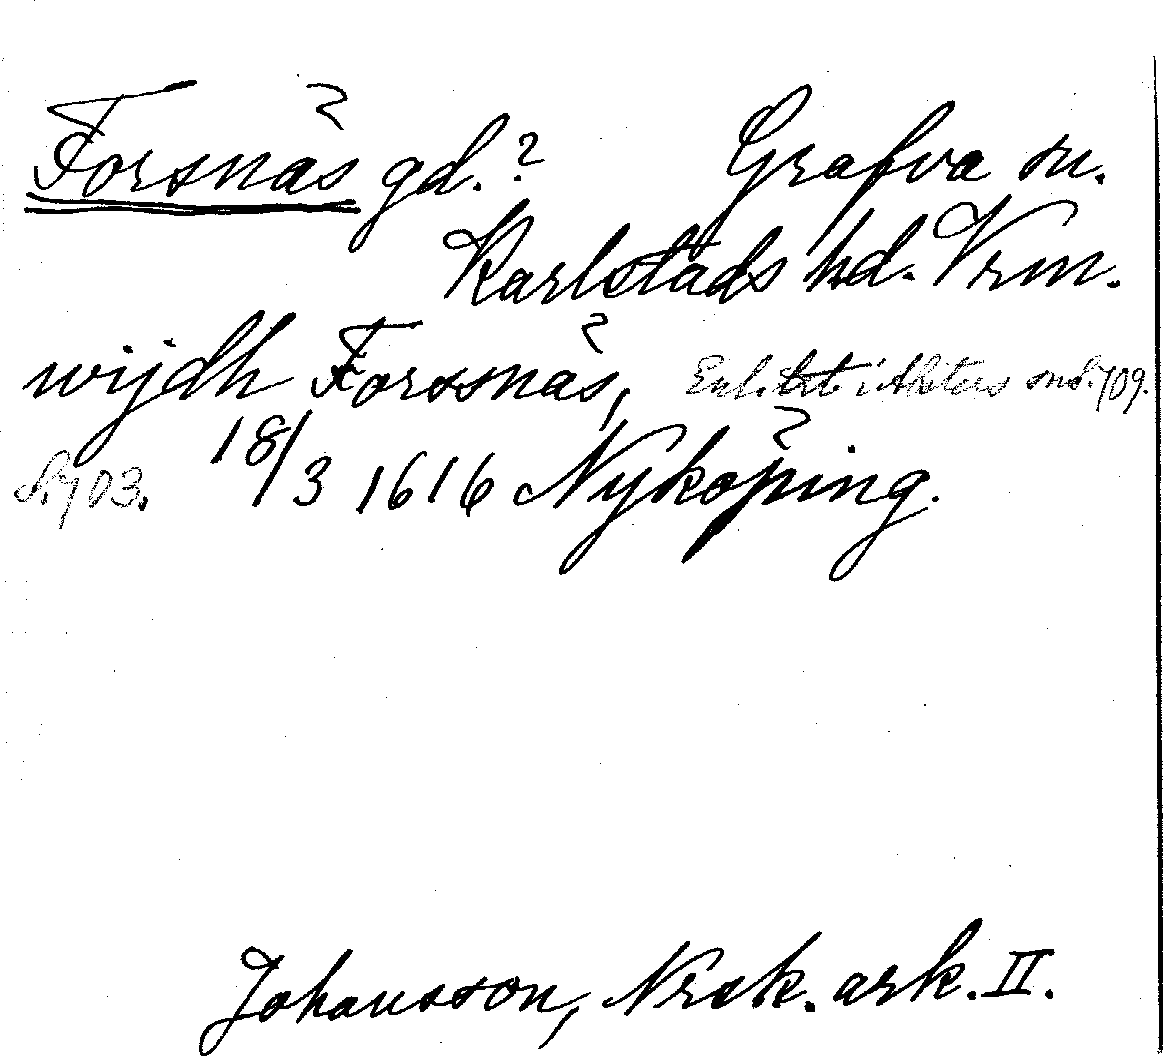 Forsnäs gd.? Grafva sn.
Karlstads hd. Vrm.
wijdh Forssnäs, Enl. i s. 709.
S. 703. 18/3 1616 Nyköping.
Johansson, Nrsk. ark. II.